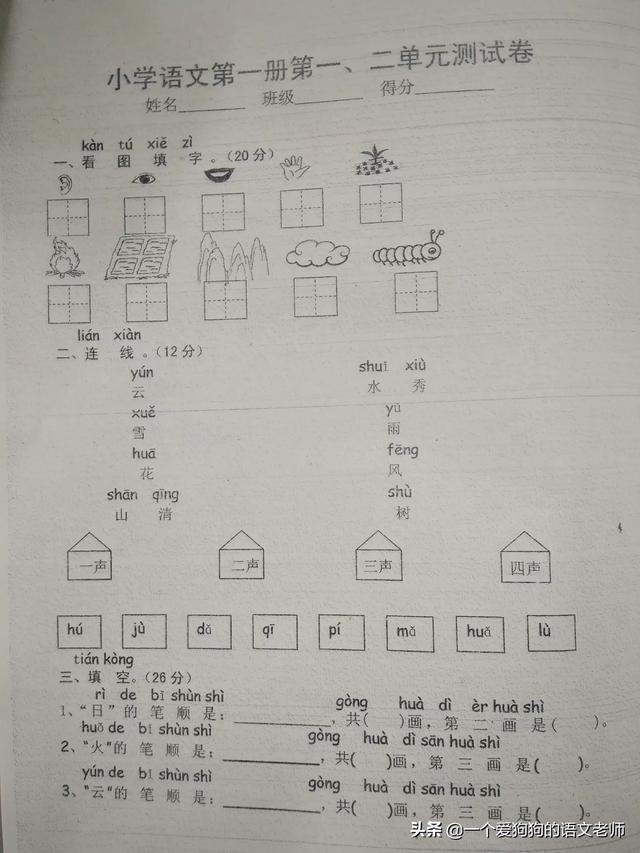 小学语文第一册第一、二单元测试卷
姓名______ 班级______ 得分______
kàn tú xiě zì
一、看 图 填 字。(20分)
lián xiàn
二、连 线。(12分)
yún shuǐ xiù
云 水 秀
xuě yǔ
雪 雨
huā fēng
花 风
shān qīng shù
山 清 树
一声 二声 三声 四声
hú jù dǎ qī pí mǎ huǎ lù
tián kòng
三、填 空。(26分)
rì de bǐ shùn shì gòng huà dì èr huà shì
1、“日”的 笔 顺 是：__________,共( )画，第 二 画 是( )。
huǒ de bǐ shùn shì gòng huà dì sān huà shì
2、“火”的 笔 顺 是：__________,共( )画，第 三 画 是( )。
yún de bǐ shùn shì gòng huà dì sān huà shì
3、“云”的 笔 顺 是：__________,共( )画，第 三 画 是( )。
头条 @一个爱狗狗的语文老师